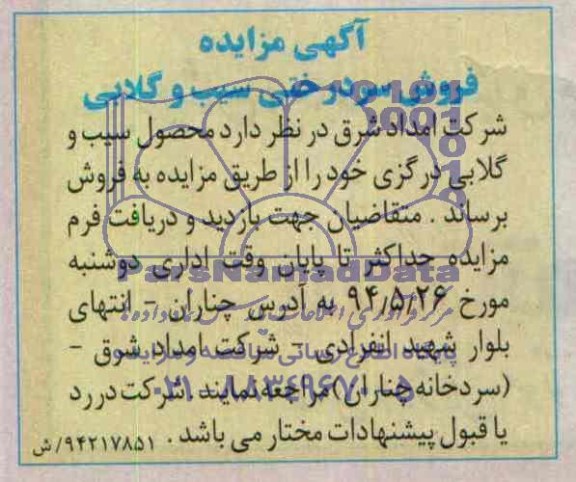 آگهی مزایده
فروش سردرختی سیب و گلابی
شرکت امداد شرق در نظر دارد محصول سیب و
گلابی درگزی خود را از طریق مزایده به فروش
برساند . متقاضیان جهت بازدید و دریافت فرم
مزایده حداکثر تا پایان وقت اداری دوشنبه
مورخ ۹۴/۵/۲۶ به آدرس چناران - انتهای
بلوار شهید انفرادی - شرکت امداد شرق -
(سردخانه چناران) مراجعه نمایند . شرکت در رد
یا قبول پیشنهادات مختار می باشد . ۹۴۲۱۷۸۵۱/ش
ParsNamadData
۰۲۱-۸۸۳۴۹۶۷۰-۵